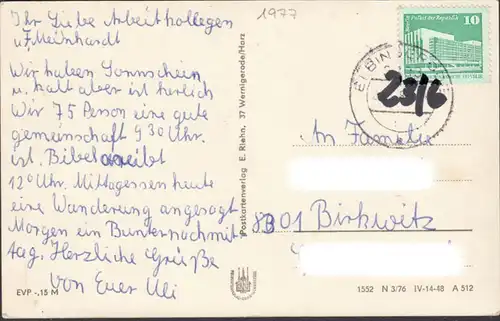 Ihr Liebe Arbeitkollegen
u. F. Meinhardt
Wir haben Sonnschein
u. kalt aber ist herlich
Wir 75 Person eine gute
gemeinschaft 9 30 Uhr.
ist. Bibelarbeibt
12° Uhr. Mittagessen heute
eine Wanderung angesagt
Morgen ein Bunternachmit
tag. Herzliche Grüße
von Euer Uli
EVP -,15 M
1977
Postkartenverlag E. Riehn, 37 Wernigerode/Harz
10
ELBIN
23/2
An Familie
8301 Birkwitz
1552 N 3/76 IV-14-48 A 512